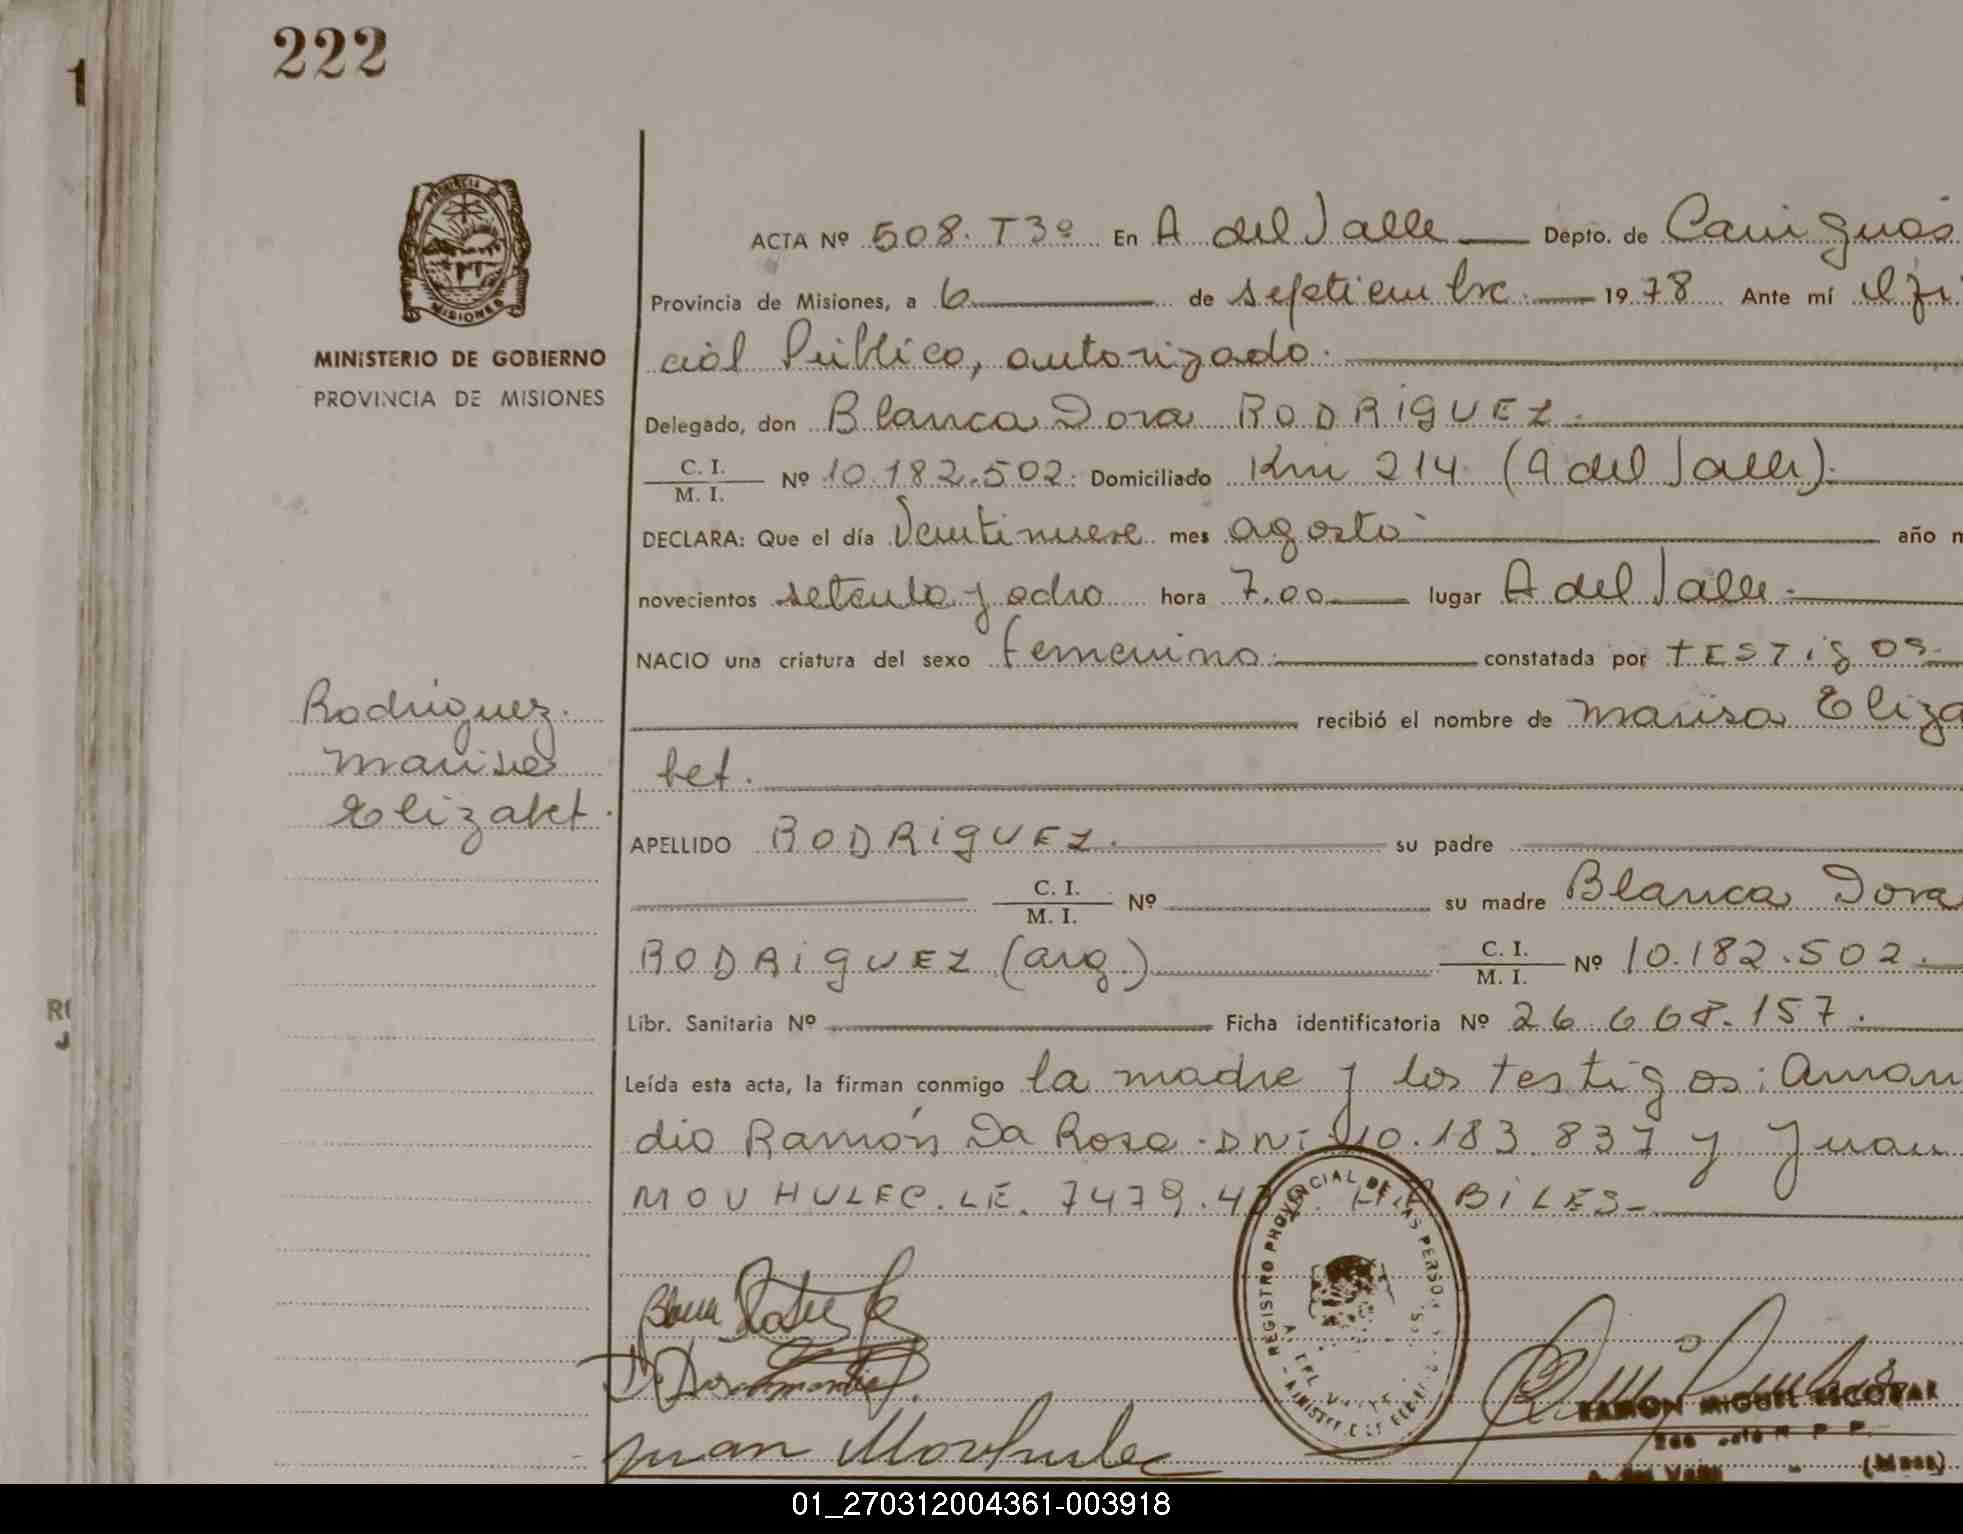 222
1
PROVINCIA
MISIONES
MINISTERIO DE GOBIERNO
PROVINCIA DE MISIONES
ACTA Nº 508. T3º En A del Valle Depto. de Cainguás
Provincia de Misiones, a 6 de septiembre 1978 Ante mí Ofi
cial Público, autorizado.
Delegado, don Blanca Dora RODRIGUEZ.
C. I.
M. I. Nº 10.182.502. Domiciliado Km 214 (A del Valle).
DECLARA: Que el día Veintinueve mes agosto año m
novecientos setenta y ocho hora 7.00 lugar A del Valle.
NACIO una criatura del sexo femenino. constatada por TESTigos
Rodriguez.
recibió el nombre de Marisa Eliza
Marisa
bet.
Elizabet.
APELLIDO RODRIGUEZ. su padre
C. I.
M. I. Nº su madre Blanca Dora
RODRIGUEZ (arg.) C. I.
M. I. Nº 10.182.502.
RO
J
Libr. Sanitaria Nº Ficha identificatoria Nº 26.668.157.
Leída esta acta, la firman conmigo la madre y los testigos: Aman
dio Ramón Da Rosa. DNI 10.183.837 y Juan
MOVHULEC. LE. 7479.4 BILES
REGISTRO PROVINCIAL DE LAS PERSO
Juan Movhulec
RAMON MIGUEL ESCOBAR
(Mnes)
01_270312004361-003918